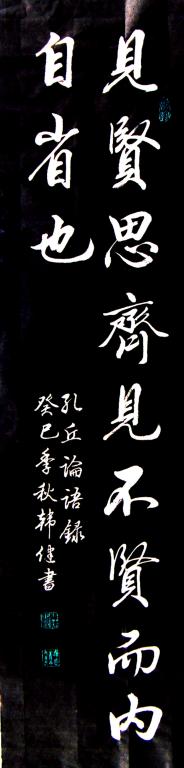 見賢思齊見不賢而内
自省也
孔丘論語錄
癸巳季秋韩健書